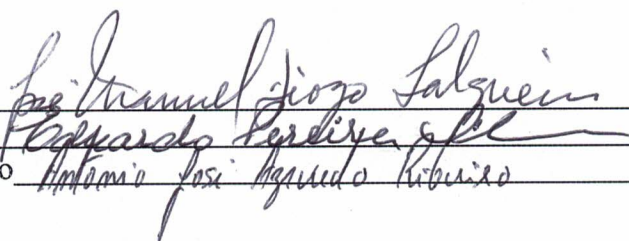 José Manuel Diogo Salgueiro
Eduardo Pereira
o António José Azevedo Ribeiro